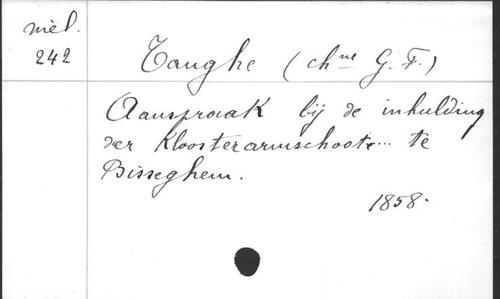 mèl.
242
Tanghe (chne G. F.)
Aanspraak bij de inhulding
der Kloosterarmschoole... te
Bisseghem.
1858.